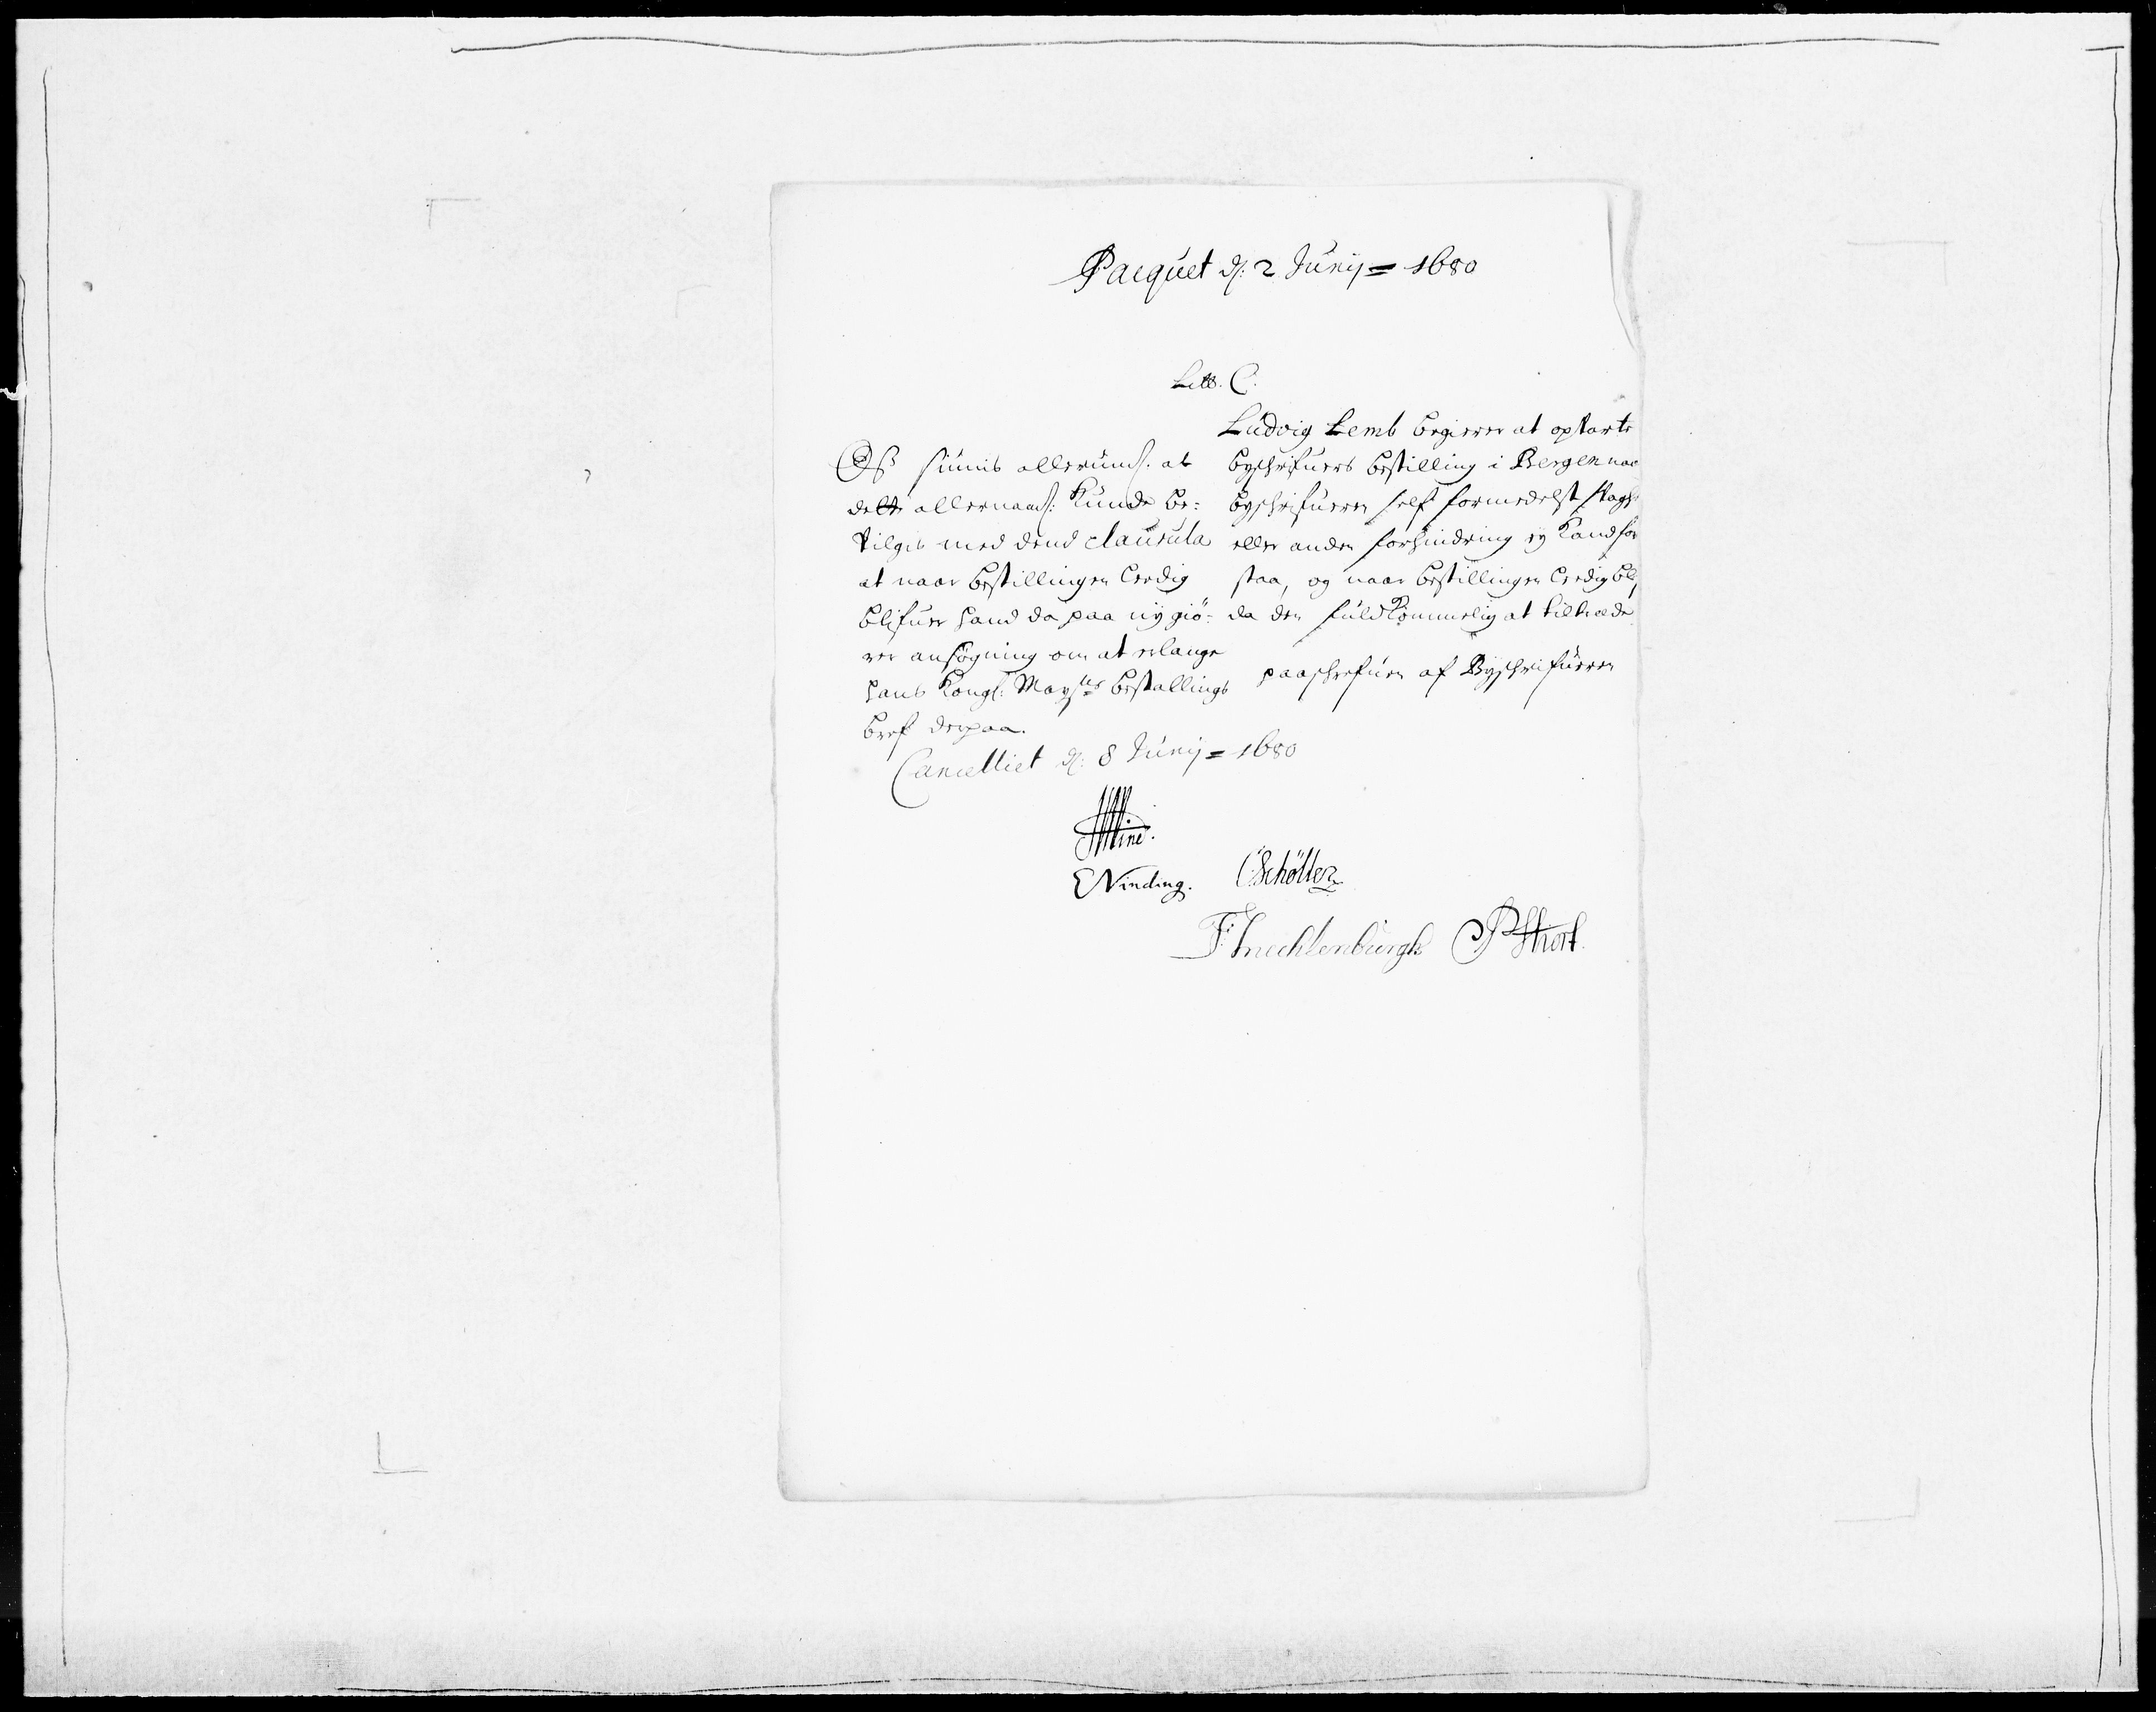 Pacquet d: 2 Junij = 1680
Litt. C.
Ludvig Lemb begierer at opvarte
byschrifuers bestilling i Bergen naar
byschrifueren self formedelst svaghed
eller anden forhindring ej kand for
staa, og naar bestillingen ledig bli,
da den fuldkommelig at tiltræde
paaschrefuen af Byschrifueren
Oss siunis allerund: at
dette allernaad: kunde be=
vilges med dend clausula
at naar bestillingen ledig
blifuer hand da paa ny giö=
rer ansögning om at erlange
hans Kongl: Maysts bestallings
bref derpaa.
Cancelliet d: 8 Junij = 1680
EVinding. CSchöller
F: Mechlenburgh P Hiort.